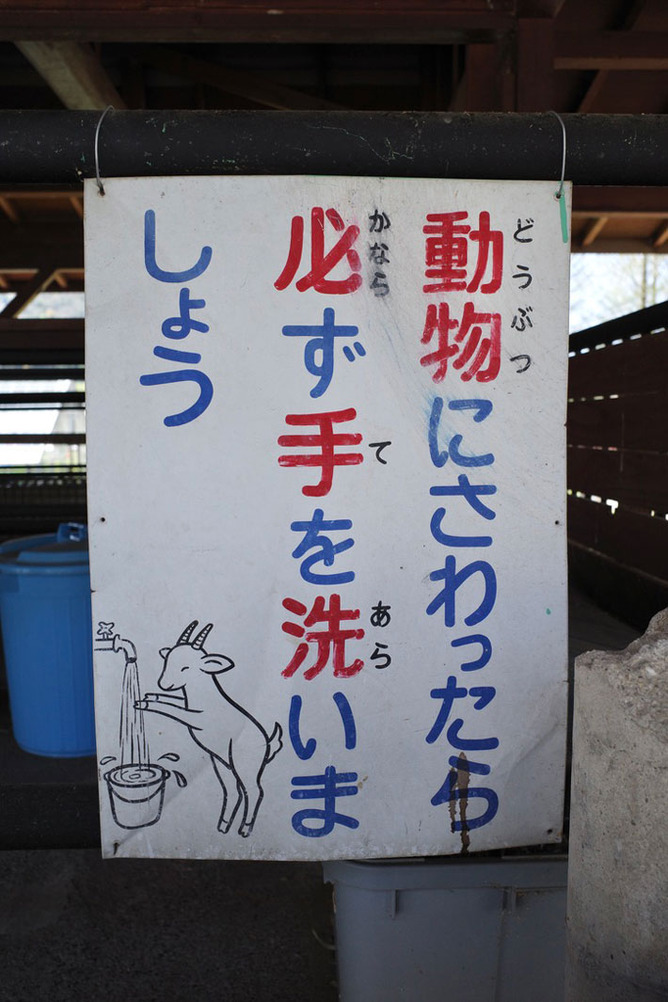 動物にさわったら
どうぶつ
必ず手を洗いま
かなら
て
あら
しょう